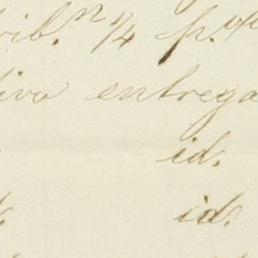 rib.ⁿ ¼ p. %
tivo entrega
id.
id.